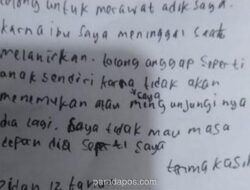 tolong untuk merawat adik saya.
karna ibu saya meninggal saat
melahirkan. tolong anggap seperti
anak sendiri karna tidak akan
saya
menemukan atau mengunjungi nya
dia lagi. saya tidak mau masa
depan dia seperti saya
terma kasih
12
paradapos.com